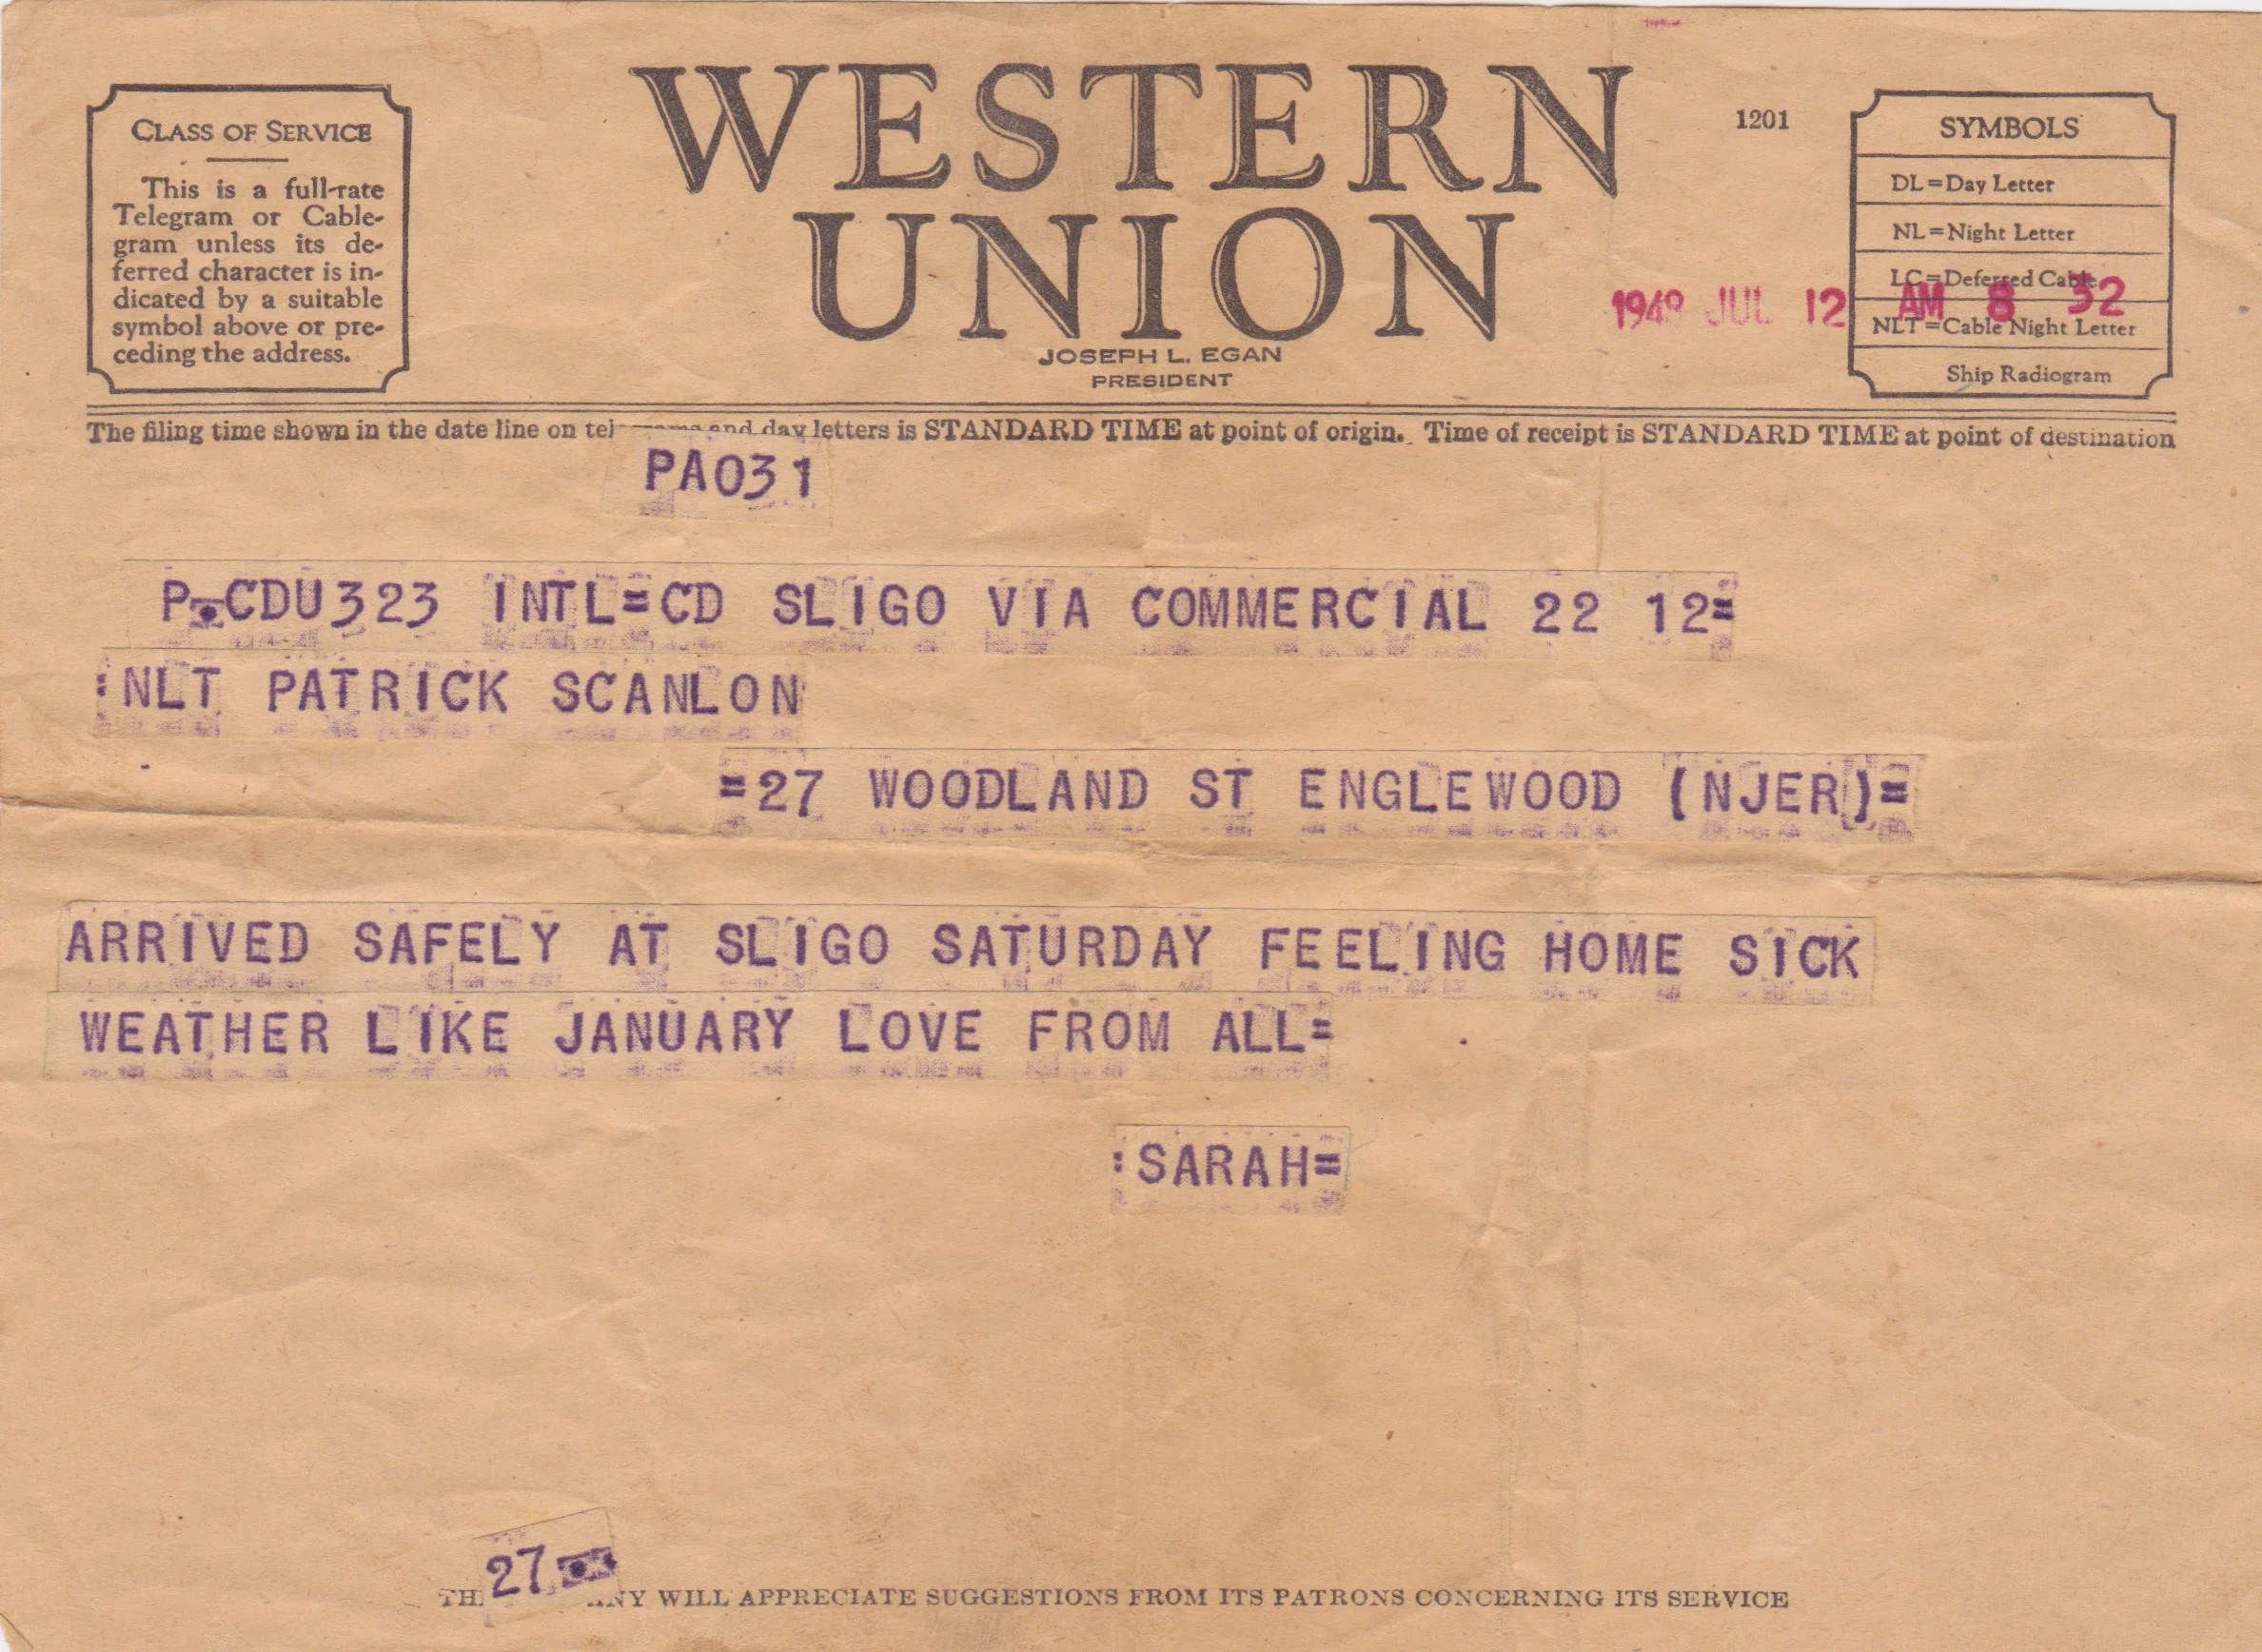 WESTERN
UNION
1201
JOSEPH L. EGAN
PRESIDENT
CLASS OF SERVICE
This is a full-rate
Telegram or Cable-
gram unless its de-
ferred character is in-
dicated by a suitable
symbol above or pre-
ceding the address.
SYMBOLS
DL=Day Letter
NL=Night Letter
LC=Deferred Cable
NLT=Cable Night Letter
Ship Radiogram
JUL 12 AM 8 32
The filing time shown in the date line on and day letters is STANDARD TIME at point of origin. Time of receipt is STANDARD TIME at point of destination
PA031
P.CDU323 INTL=CD SLIGO VIA COMMERCIAL 22 12=
:NLT PATRICK SCANLON
=27 WOODLAND ST ENGLEWOOD (NJER)=
ARRIVED SAFELY AT SLIGO SATURDAY FEELING HOME SICK
WEATHER LIKE JANUARY LOVE FROM ALL=
:SARAH=
27
WILL APPRECIATE SUGGESTIONS FROM ITS PATRONS CONCERNING ITS SERVICE